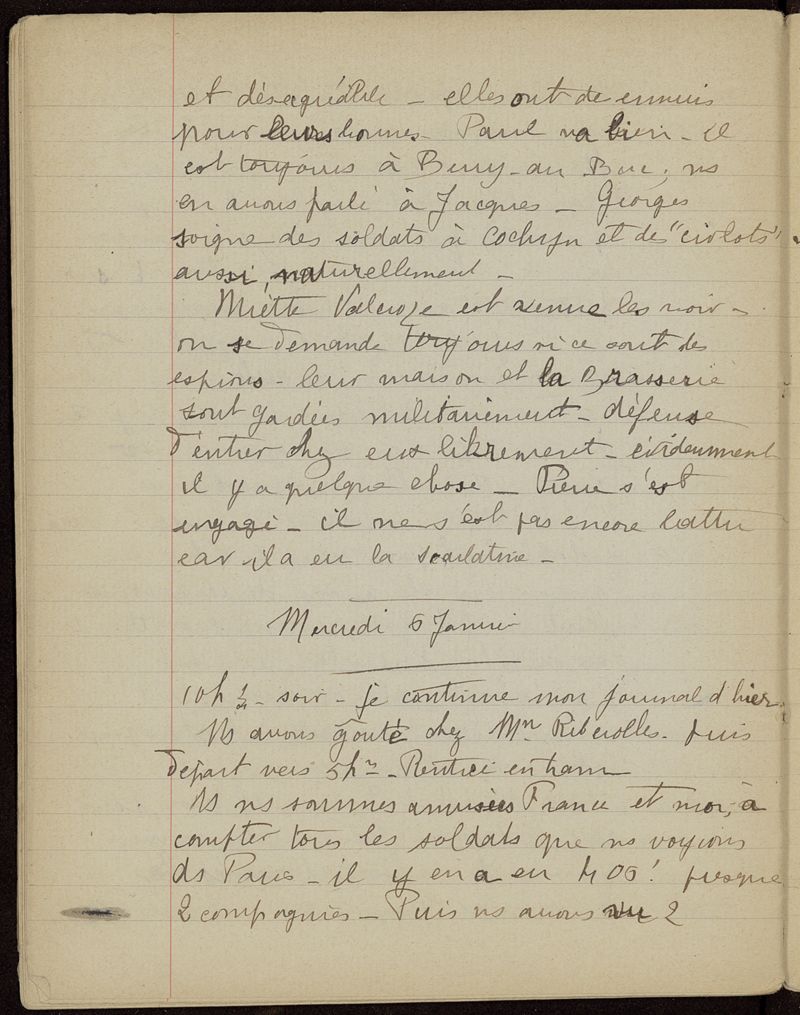 et désagréable – elles ont de ennuis
pour leurs bonnes – Paul va bien – il
est toujours à Berry-au Bac ; ns
en avons parlé à Jacques – Georges
soigne des soldats à Cochyn et des "civlots"
aussi, naturellement –
Miette est venue les voir –
on se demande toujours si ce sont des
espions – leur maison et la Brasserie
sont gardées militairement – défense
d'entrer chez eux librement – évidemment
il y a quelque chose – Pierre s'est
engagé – il ne s'est pas encore battu
car il a eu la scarlatine –
Mercredi 6 Janvier
10h ½ – soir – je continue mon journal d'hier.
Ns avons goûté chez Mm Riberolles. puis
départ vers 5h – Rentrée en tram
Ns ns sommes amusées France et moi, à
compter tous les soldats que ns voyions
ds Paris – il y en a eu 400 ! presque
2 compagnies – Puis ns avons vu 2